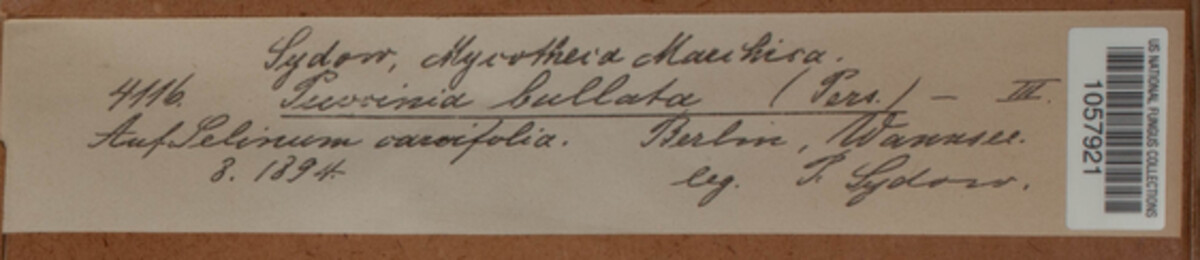 Sydow, Mycotheca Marchica.
4116. Puccinia bullata (Pers.) — III.
Auf Selinum carvifolia. Berlin, Wannsee.
8. 1894. leg. P. Sydow.
US NATIONAL FUNGUS COLLECTIONS
1057921